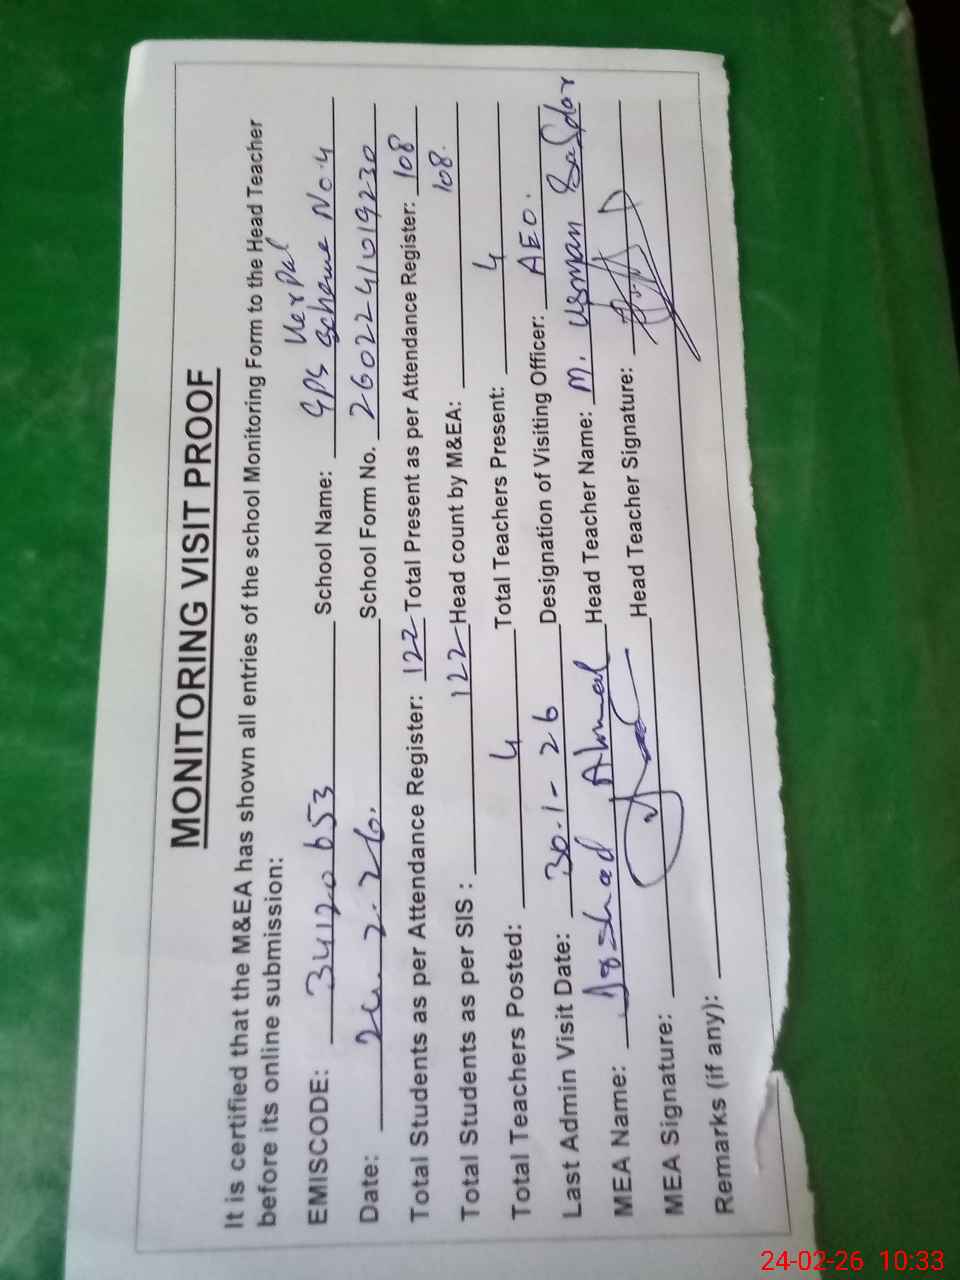 MONITORING VISIT PROOF
It is certified that the M&EA has shown all entries of the school Monitoring Form to the Head Teacher
before its online submission:
EMISCODE: 34120653 School Name: GPS Scheme No.4
Date: 24.2.26. School Form No. 26022441019230
Total Students as per Attendance Register: 122 Total Present as per Attendance Register: 108
Total Students as per SIS : 122 Head count by M&EA: 108.
Total Teachers Posted: 4 Total Teachers Present: 4
Last Admin Visit Date: 30-1-26 Designation of Visiting Officer: AEO.
MEA Name: Ahmed Head Teacher Name: M. Usman
MEA Signature: Head Teacher Signature:
Remarks (if any):
24-02-26 10:33